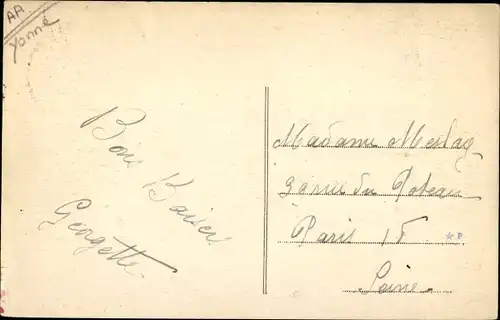 AA
Yonne
Bons Baisers
Georgette
Madame Meslag
30 rue du Poteau
Paris 18
Seine
*P